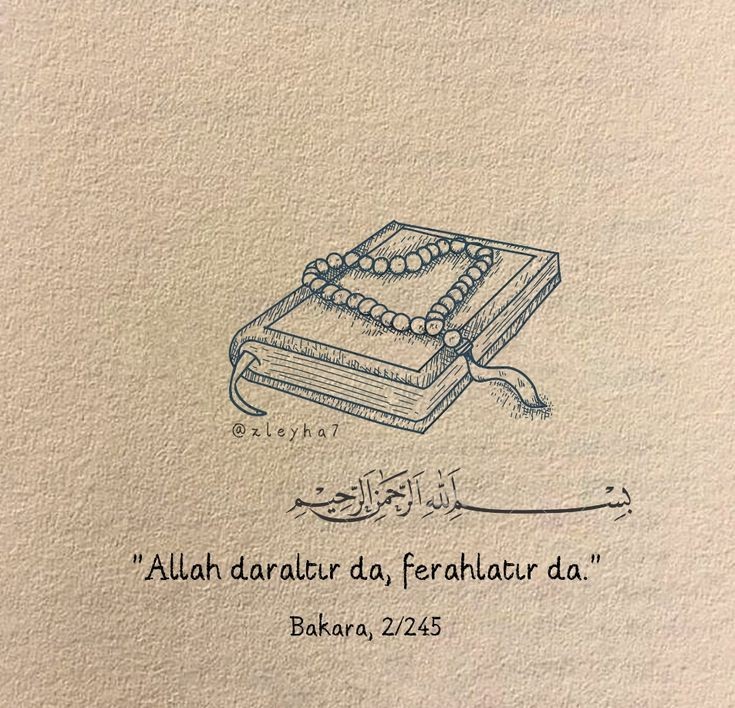 @zleyha7
بِسْمِ اللهِ الرَّحْمٰنِ الرَّحِيْمِ
"Allah daraltır da, ferahlatır da."
Bakara, 2/245